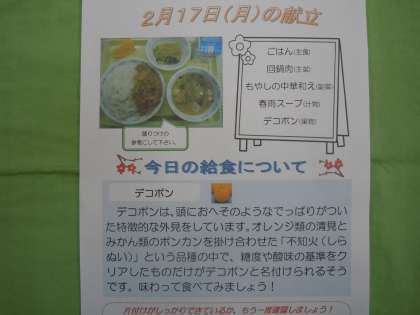 2月17日(月)の献立
ごはん(主食)
回鍋肉(主菜)
もやしの中華和え(副菜)
春雨スープ(汁物)
デコポン(果物)
盛りつけの
参考にして下さい。
今日の給食について
デコポン
デコポンは、頭におへそのようなでっぱりがつい
た特徴的な外見をしています。オレンジ類の清見と
みかん類のポンカンを掛け合わせた「不知火(しら
ぬい)」という品種の中で、糖度や酸味の基準をク
リアしたものだけがデコポンと名付けられるそうで
す。味わって食べてみましょう!
片付けがしっかりできているか、もう一度確認しましょう!